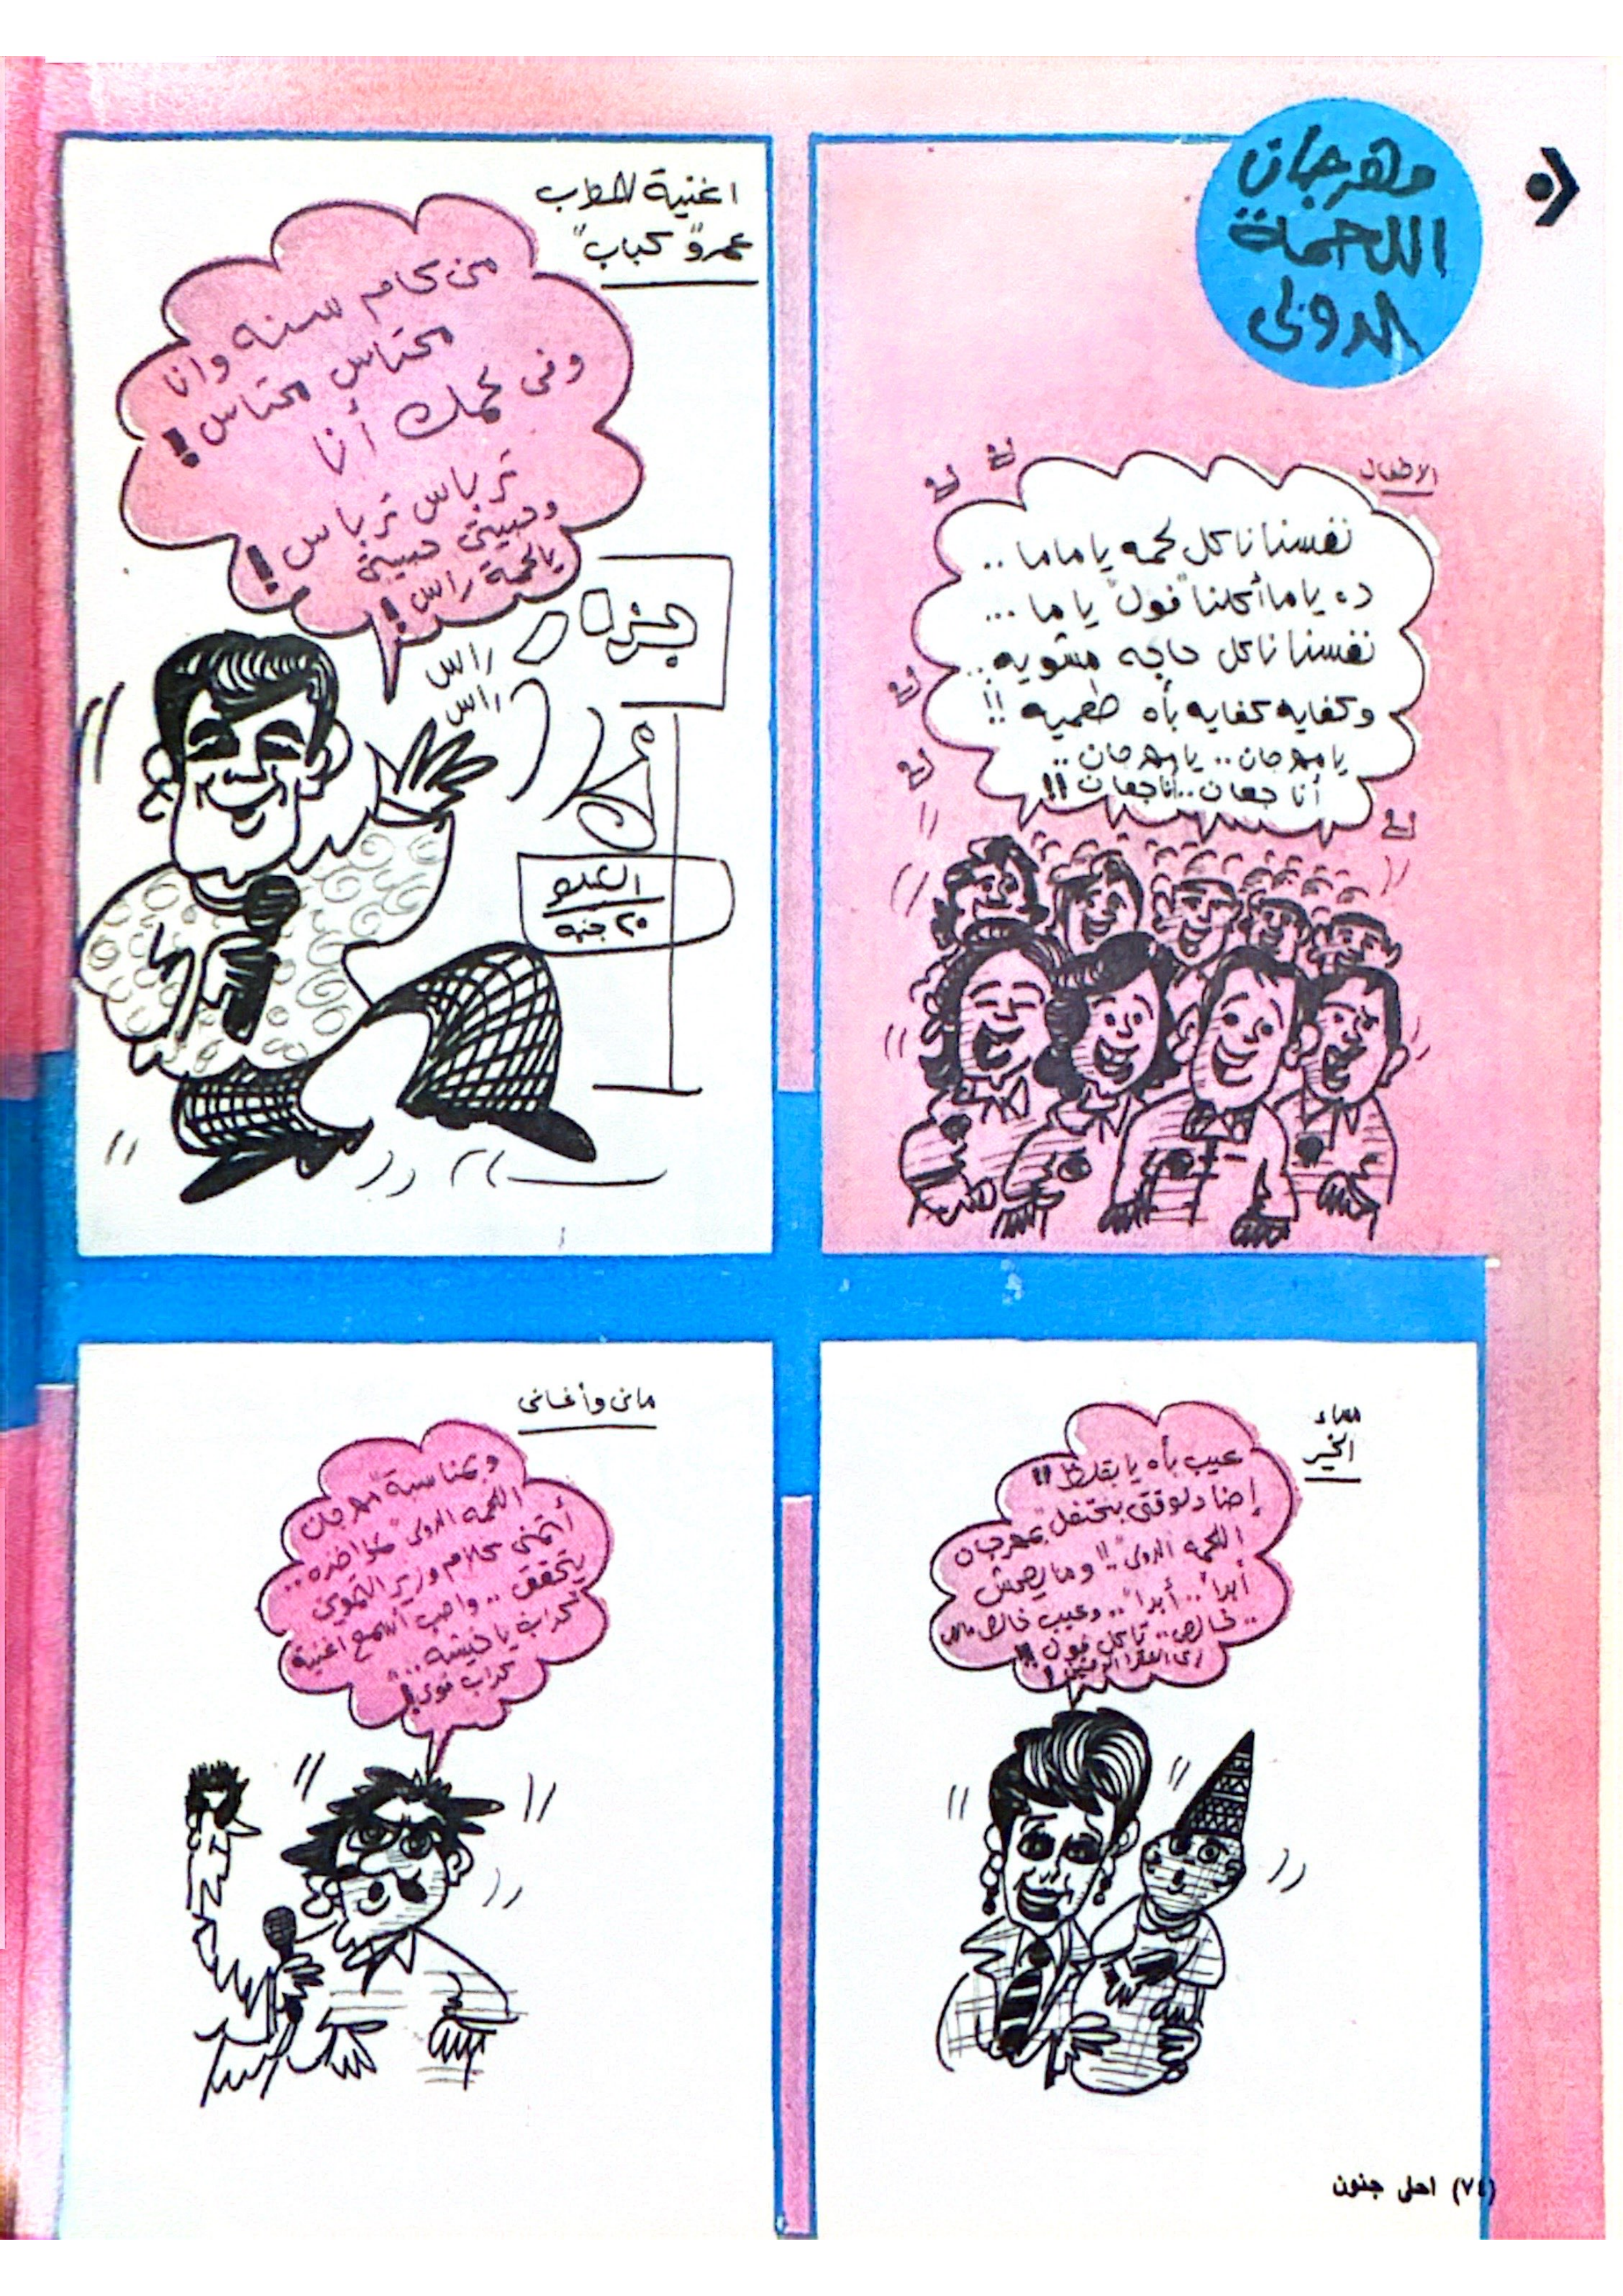 مهرجان
اللحمة
الدولى
الاطفال
نفسنا ناكل لحمه يا ماما ..
ده ياما أكلنا "فول" ياما ...
نفسنا ناكل حاجه مشويه ..
وكفايه كفايه بأه طعميه !!
يا مهرجان .. يا مهرجان ..
أنا جعان .. أنا جعان !!
اغنية للمطرب
عمرو "كباب"
من كام سنه وانا
محتاس محتاس !
وفى لحمك أنا
ترباس ترباس !
وحبيبتى حبيبتى
يا لحمة راس !
راس
راس
جزار
الكيلو
٢٠ جنيه
مساء
الخير
عيب بأه يا بقلظ !!
إحنا دلوقتى بنحتفل بمهرجان
اللحمه الدولى .. !! وما يصحش
أبداً .. أبداً .. وعيب خالص
خالص .. تاكل فول !!
زى الفقرا
مانى وأغانى
وبمناسبة مهرجان
اللحمه الدولى
أتمنى كلام وزير التموين
يتحقق .. واحب أسمع اغنية
كداب يا خيشه ..
كداب قوى !
(٧٤) احلى جنون